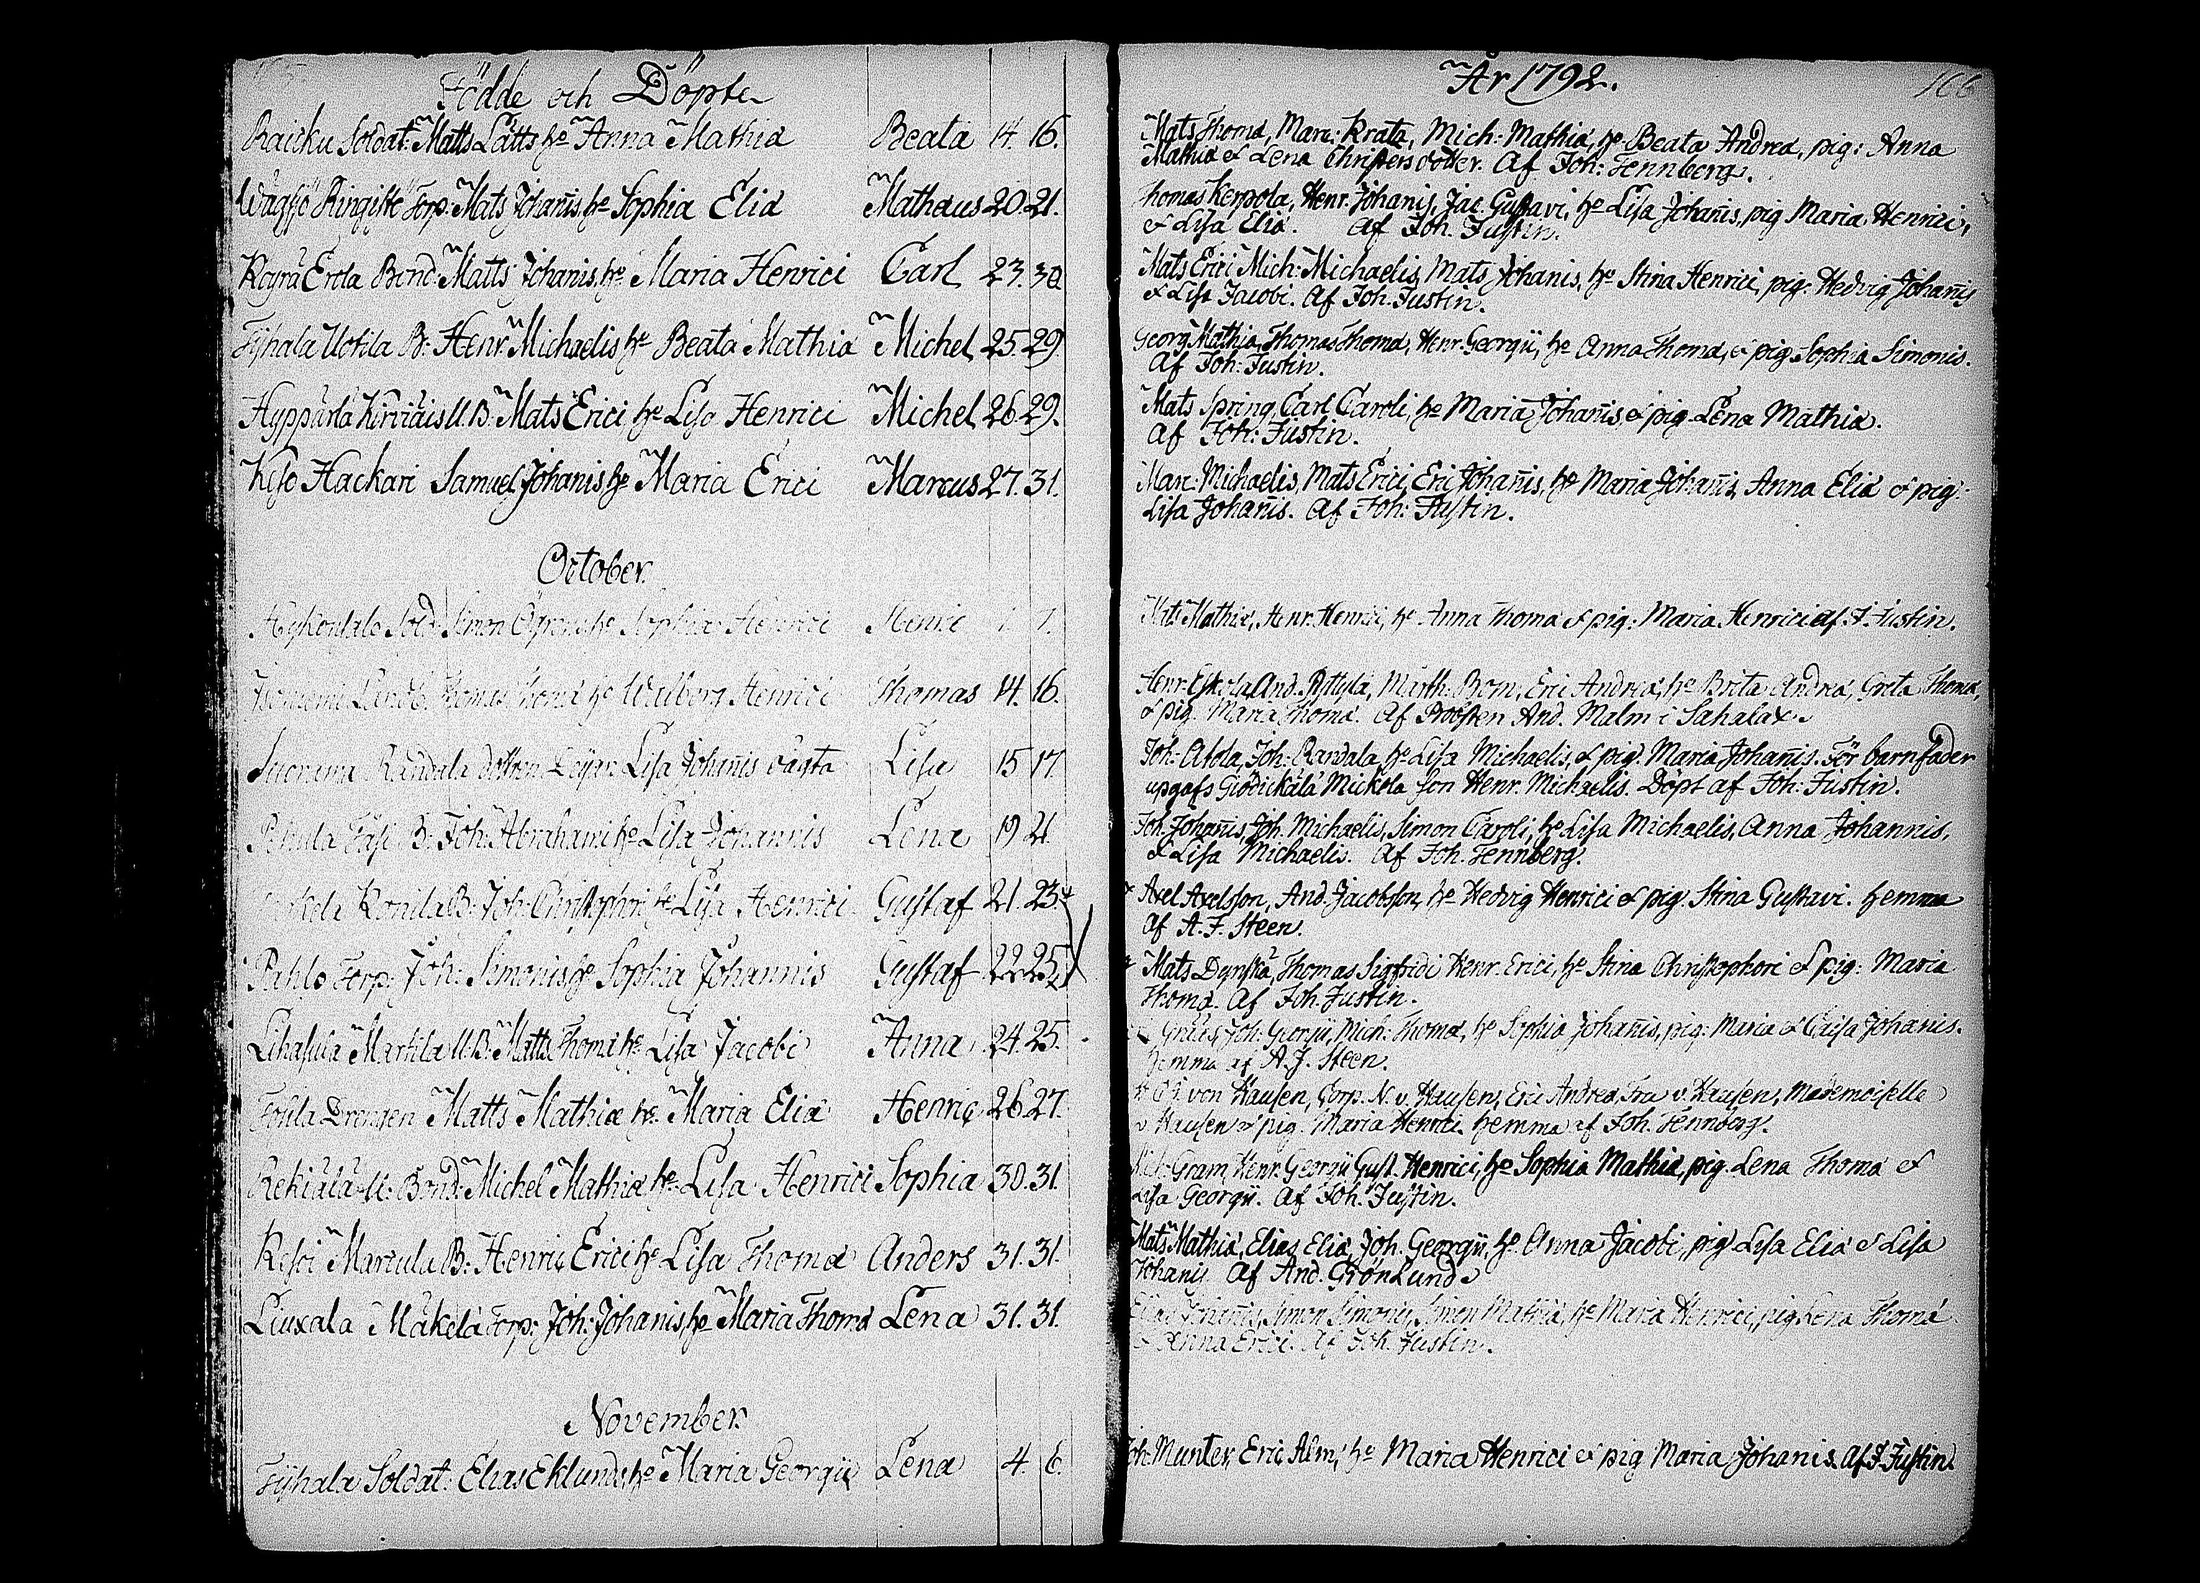 Födde och Döpte
Raicku Soldat: Matts Lätts he Anna Mathiæ Beata 14. 16.
Torp: Mats Johañis he Sophia Eliæ Mathæus 20. 21.
Köyrä Erola Bond: Matts Johanis, he Maria Henrici Carl 23. 30
Uotila B: Henr: Michaelis he Beata Mathiæ Michel 25. 29
Hyppärlä U. B: Mats Erici he Lisa Henrici Michel 26. 29.
Keso Hackari Samuel Johanis he Maria Erici Marcus 27. 31.
October.
Sold: Simon he Sophia Henrici Henric 7.
Thomas Thomæ he Walborg Henrici Thomas 14. 16.
Randala dottren Lisa Johañis oägta Lisa 15 17.
B: Joh: Abrahami he Lisa Johannis Lena 19 21
Konila B: Joh: Christophori he Lisa Henrici Gustaf 21. 23
Pahlo Torp: Joh: Simonis, he Sophia Johannis Gustaf 22. 25.
Lihasula Martila U. B: Matts Thomæ he Lisa Jacobi Anna 24. 25.
Drengen Matts Mathiæ he Maria Eliæ Henric 26. 27.
Rekiälä U: Bond: Michel Mathiæ he Lisa Henrici Sophia 30. 31.
Kesoi Marcula B: Henric Erici he Lisa Thomæ Anders 31. 31.
Liuxala Mäkelä Torp: Joh: Johanis, he Maria Thomæ Lena 31. 31.
November.
Soldat: Elias Eklund he Maria Georgii Lena 4. 6.
År 1792. 166
Mats Thomæ, Marc: Krata, Mich: Mathiæ, he Beata Andreæ, pig: Anna
Mathiæ & Lena Christersdotter. Af Joh: Tennberg.
Thomas Kerpola, Henr. Johanis, Jac. Gustavi, he Lisa Johañis, pig Maria Henrici,
& Lisa Eliæ. Af Joh. Justin.
Mats Erici Mich: Michaelis, Mats Johanis, he Stina Henrici, pig: Hedvig Johañis
& Lisa Jacobi. Af Joh. Justin.
Georg Mathiæ, Thomas Thomæ, Henr. Georgii, he Anna Thomæ, & pig. Sophia Simonis.
Af Joh: Justin.
Mats Spring, Carl Caroli, he Maria Johañis & pig. Lena Mathiæ.
Af Joh: Justin.
Marc. Michaelis, Mats Erici, Eric Johañis, he Maria Johañis, Anna Eliæ & pig:
Lisa Johañis. Af Joh: Justin.
Mats Mathiæ, Henr. Henrici, he Anna Thomæ & pig: Maria Henrici af J. Justin.
Henr. And. Eric Andreæ, he Brita Andreæ, Greta Thomæ,
& pig. Maria Thomæ. Af Probsten And. Malm i Sahalax.
Joh: Alola, Joh: Randala, he Lisa Michaelis, & pig. Maria Johañis. För barnfader
upgafs Mickola son Henr. Michaelis. Döpt af Joh: Justin.
Joh. Johañis, Joh. Michaelis, Simon Caroli, he Lisa Michaelis, Anna Johannis,
& Lisa Michaelis. Af Joh. Tennberg.
Axel Axelsson, And. Jacobsson, he Hedvig Henrici & pig. Stina Gustavi. hemma
af A. J. Steen.
Mats Dynskä, Thomas Sigfridi Henr. Erici, he Stina Christophori & pig: Maria
Thomæ. Af Joh. Justin.
Joh: Georgii, Mich: Thomæ, he Sophia Johañis, pig: Maria & Johanis.
hemma af A. J. Steen.
von Hausen, Corp. N. v. Hausen, Eric Andreæ, Fru v. Hausen, Mademoiselle
v Hausen & pig. Maria Henrici. hemma af Joh. Tennberg.
Gram, Henr. Georgii, Gust. Henrici, he Sophia Mathiæ, pig. Lena Thomæ &
Lisa Georgii. Af Joh. Justin.
Mats Mathiæ, Elias Eliæ, Joh. Georgii, he Anna Jacobi, pig Lisa Eliæ & Lisa
Johanis. Af And. Grönlund
Simon Simonis, Simon Mathiæ, he Maria Henrici, pig Lena Thomæ
& Anna Erici. Af Joh. Justin.
Joh. Munter, Eric Alm, he Maria Henrici & pig Maria Johanis. Af J. Justin.